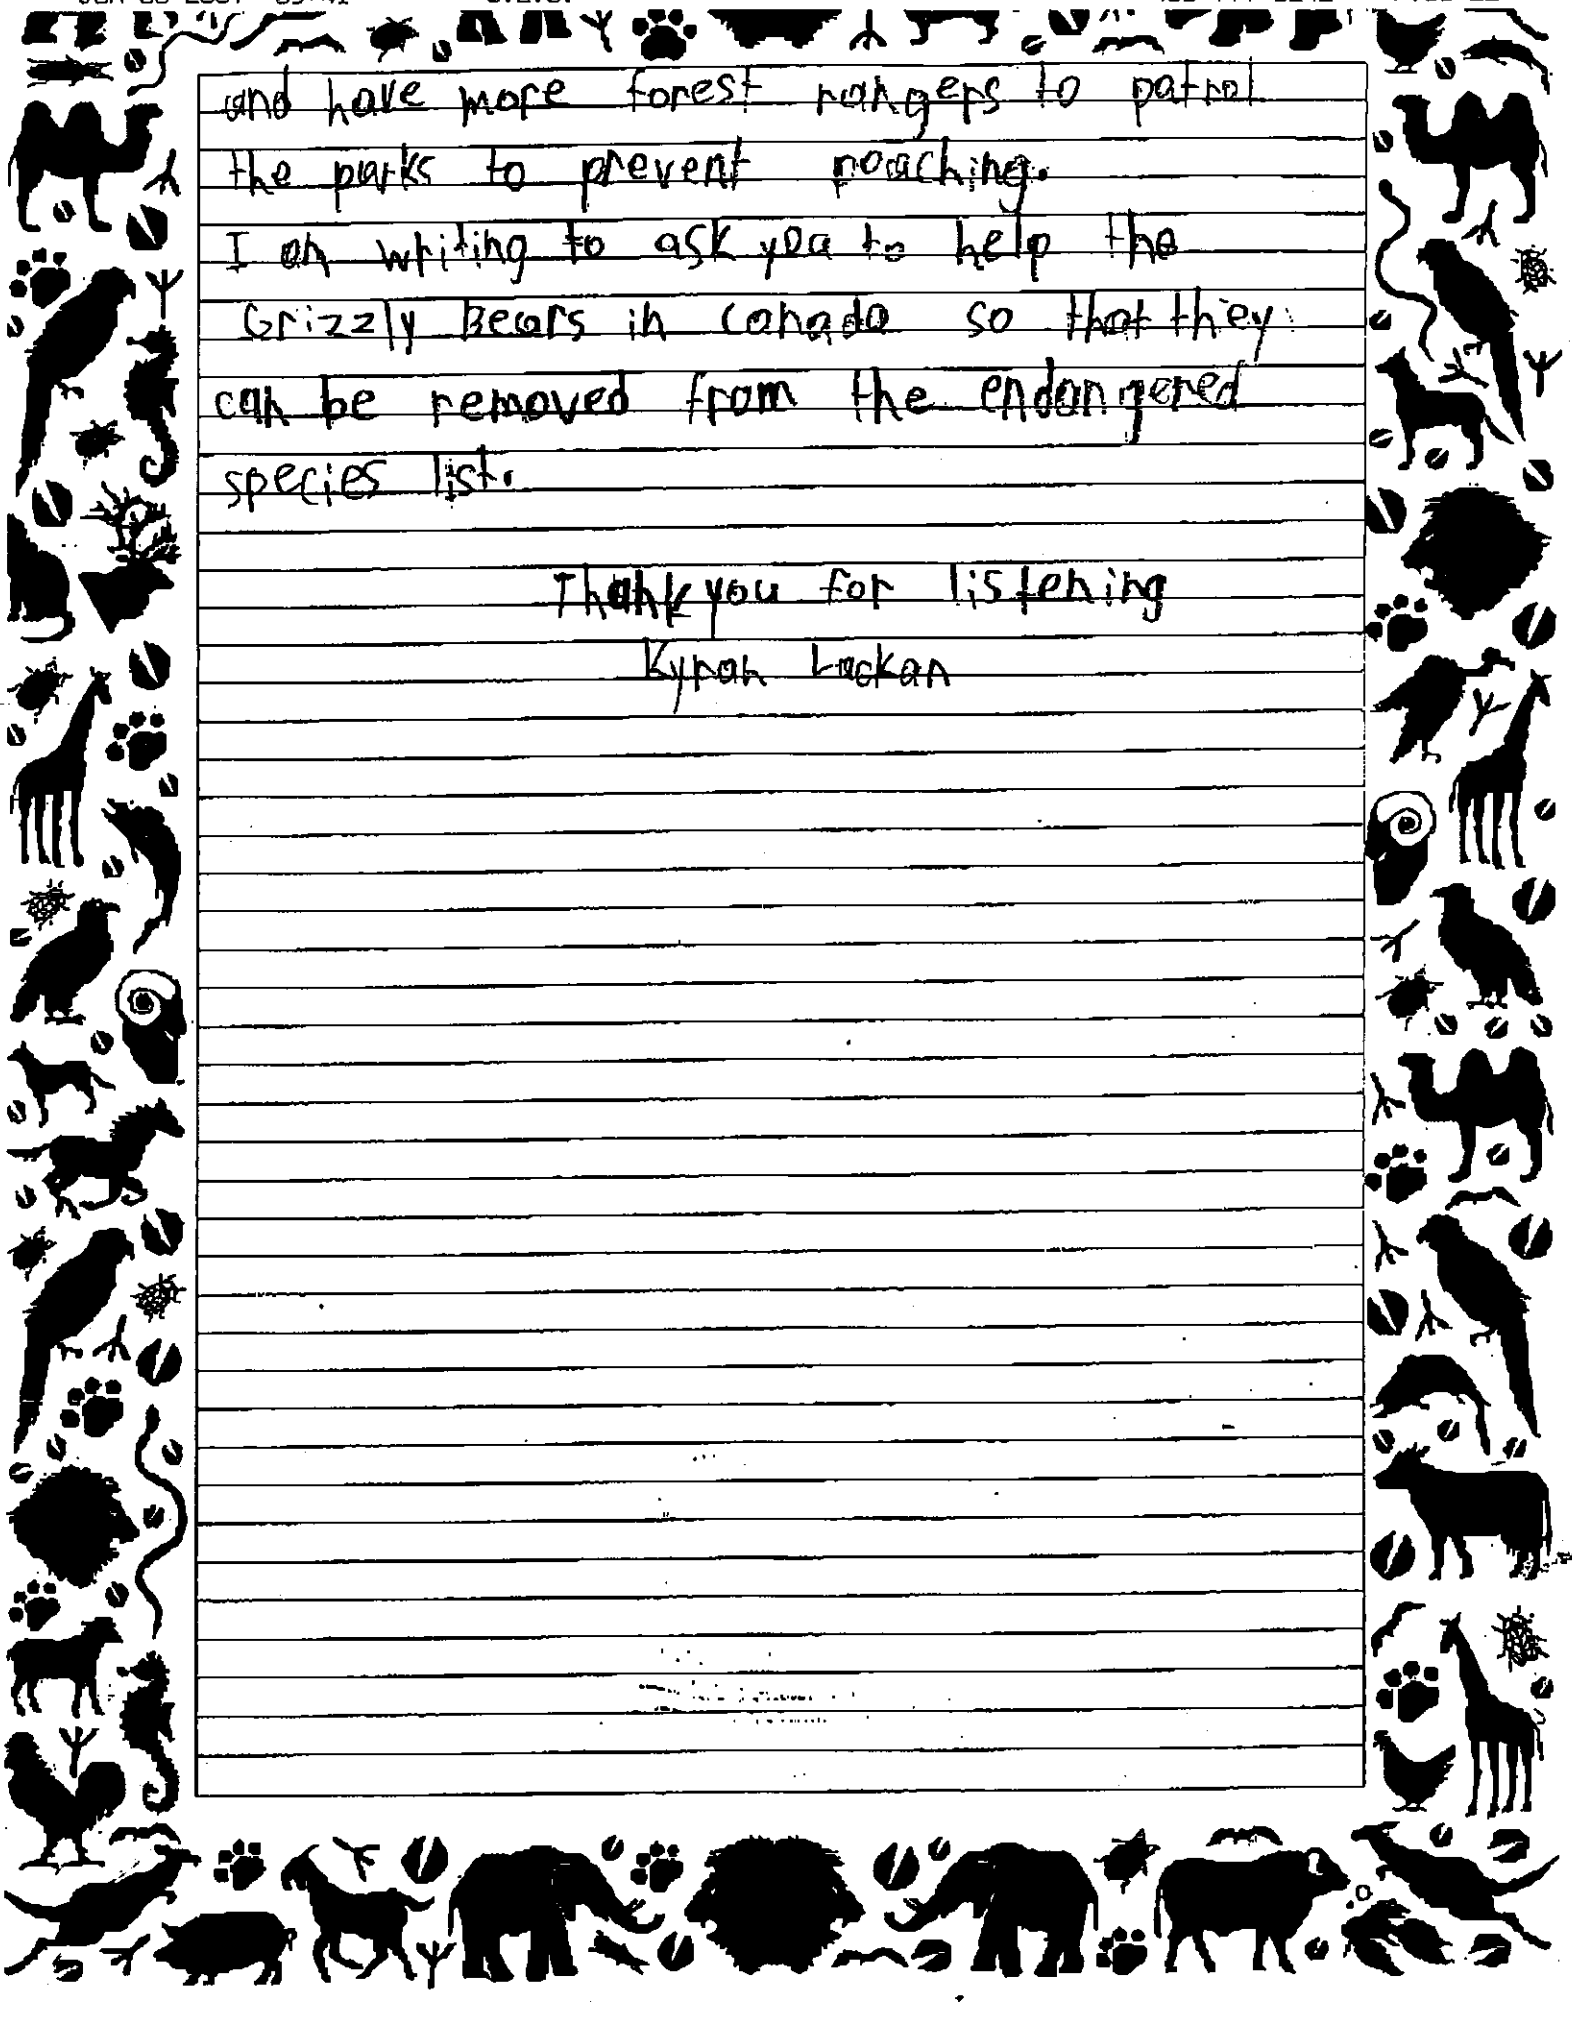 and have more forest rangers to patrol
the parks to prevent poaching.
I am writing to ask you to help the
Grizzly Bears in Canada so that they
can be removed from the endangered
species list.
Thank you for listening
Kyran Lackan